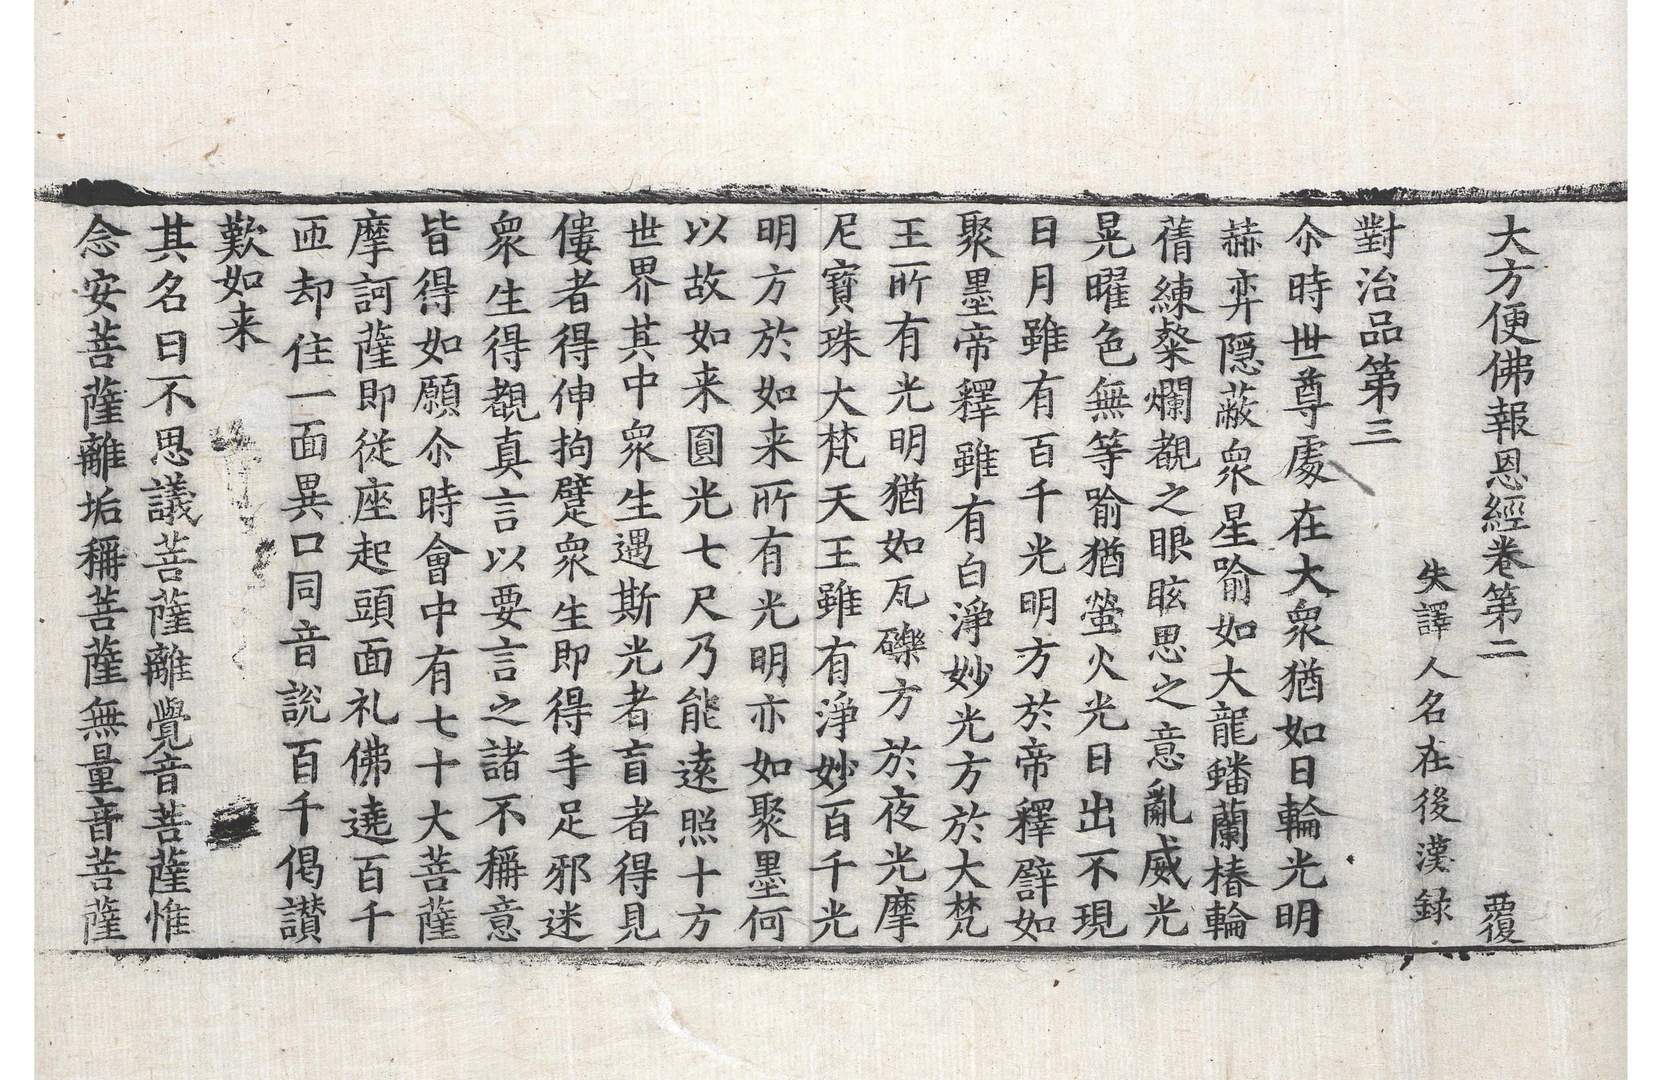 大方便佛報恩經卷第二 覆
失譯人名在後漢録
對治品第三
尒時世尊處在大衆猶如日輪光明
赫弈隱蔽衆星喻如大龍蟠蘭椿輪
蒨練粲爛覩之眼眩思之意亂威光
晃曜色無等喻猶螢火光日出不現
日月雖有百千光明方於帝釋譬如
聚墨帝釋雖有白淨妙光方於大梵
王所有光明猶如瓦礫方於夜光摩
尼寶珠大梵天王雖有淨妙百千光
明方於如来所有光明亦如聚墨何
以故如来圓光七尺乃能遠照十方
世界其中衆生遇斯光者盲者得見
僂者得伸拘躄衆生即得手足邪迷
衆生得覩真言以要言之諸不稱意
皆得如願尒時會中有七十大菩薩
摩訶薩即從座起頭面礼佛遶百千
匝却住一面異口同音説百千偈讃
歎如来
其名曰不思議菩薩離覺音菩薩惟
念安菩薩離垢稱菩薩無量音菩薩